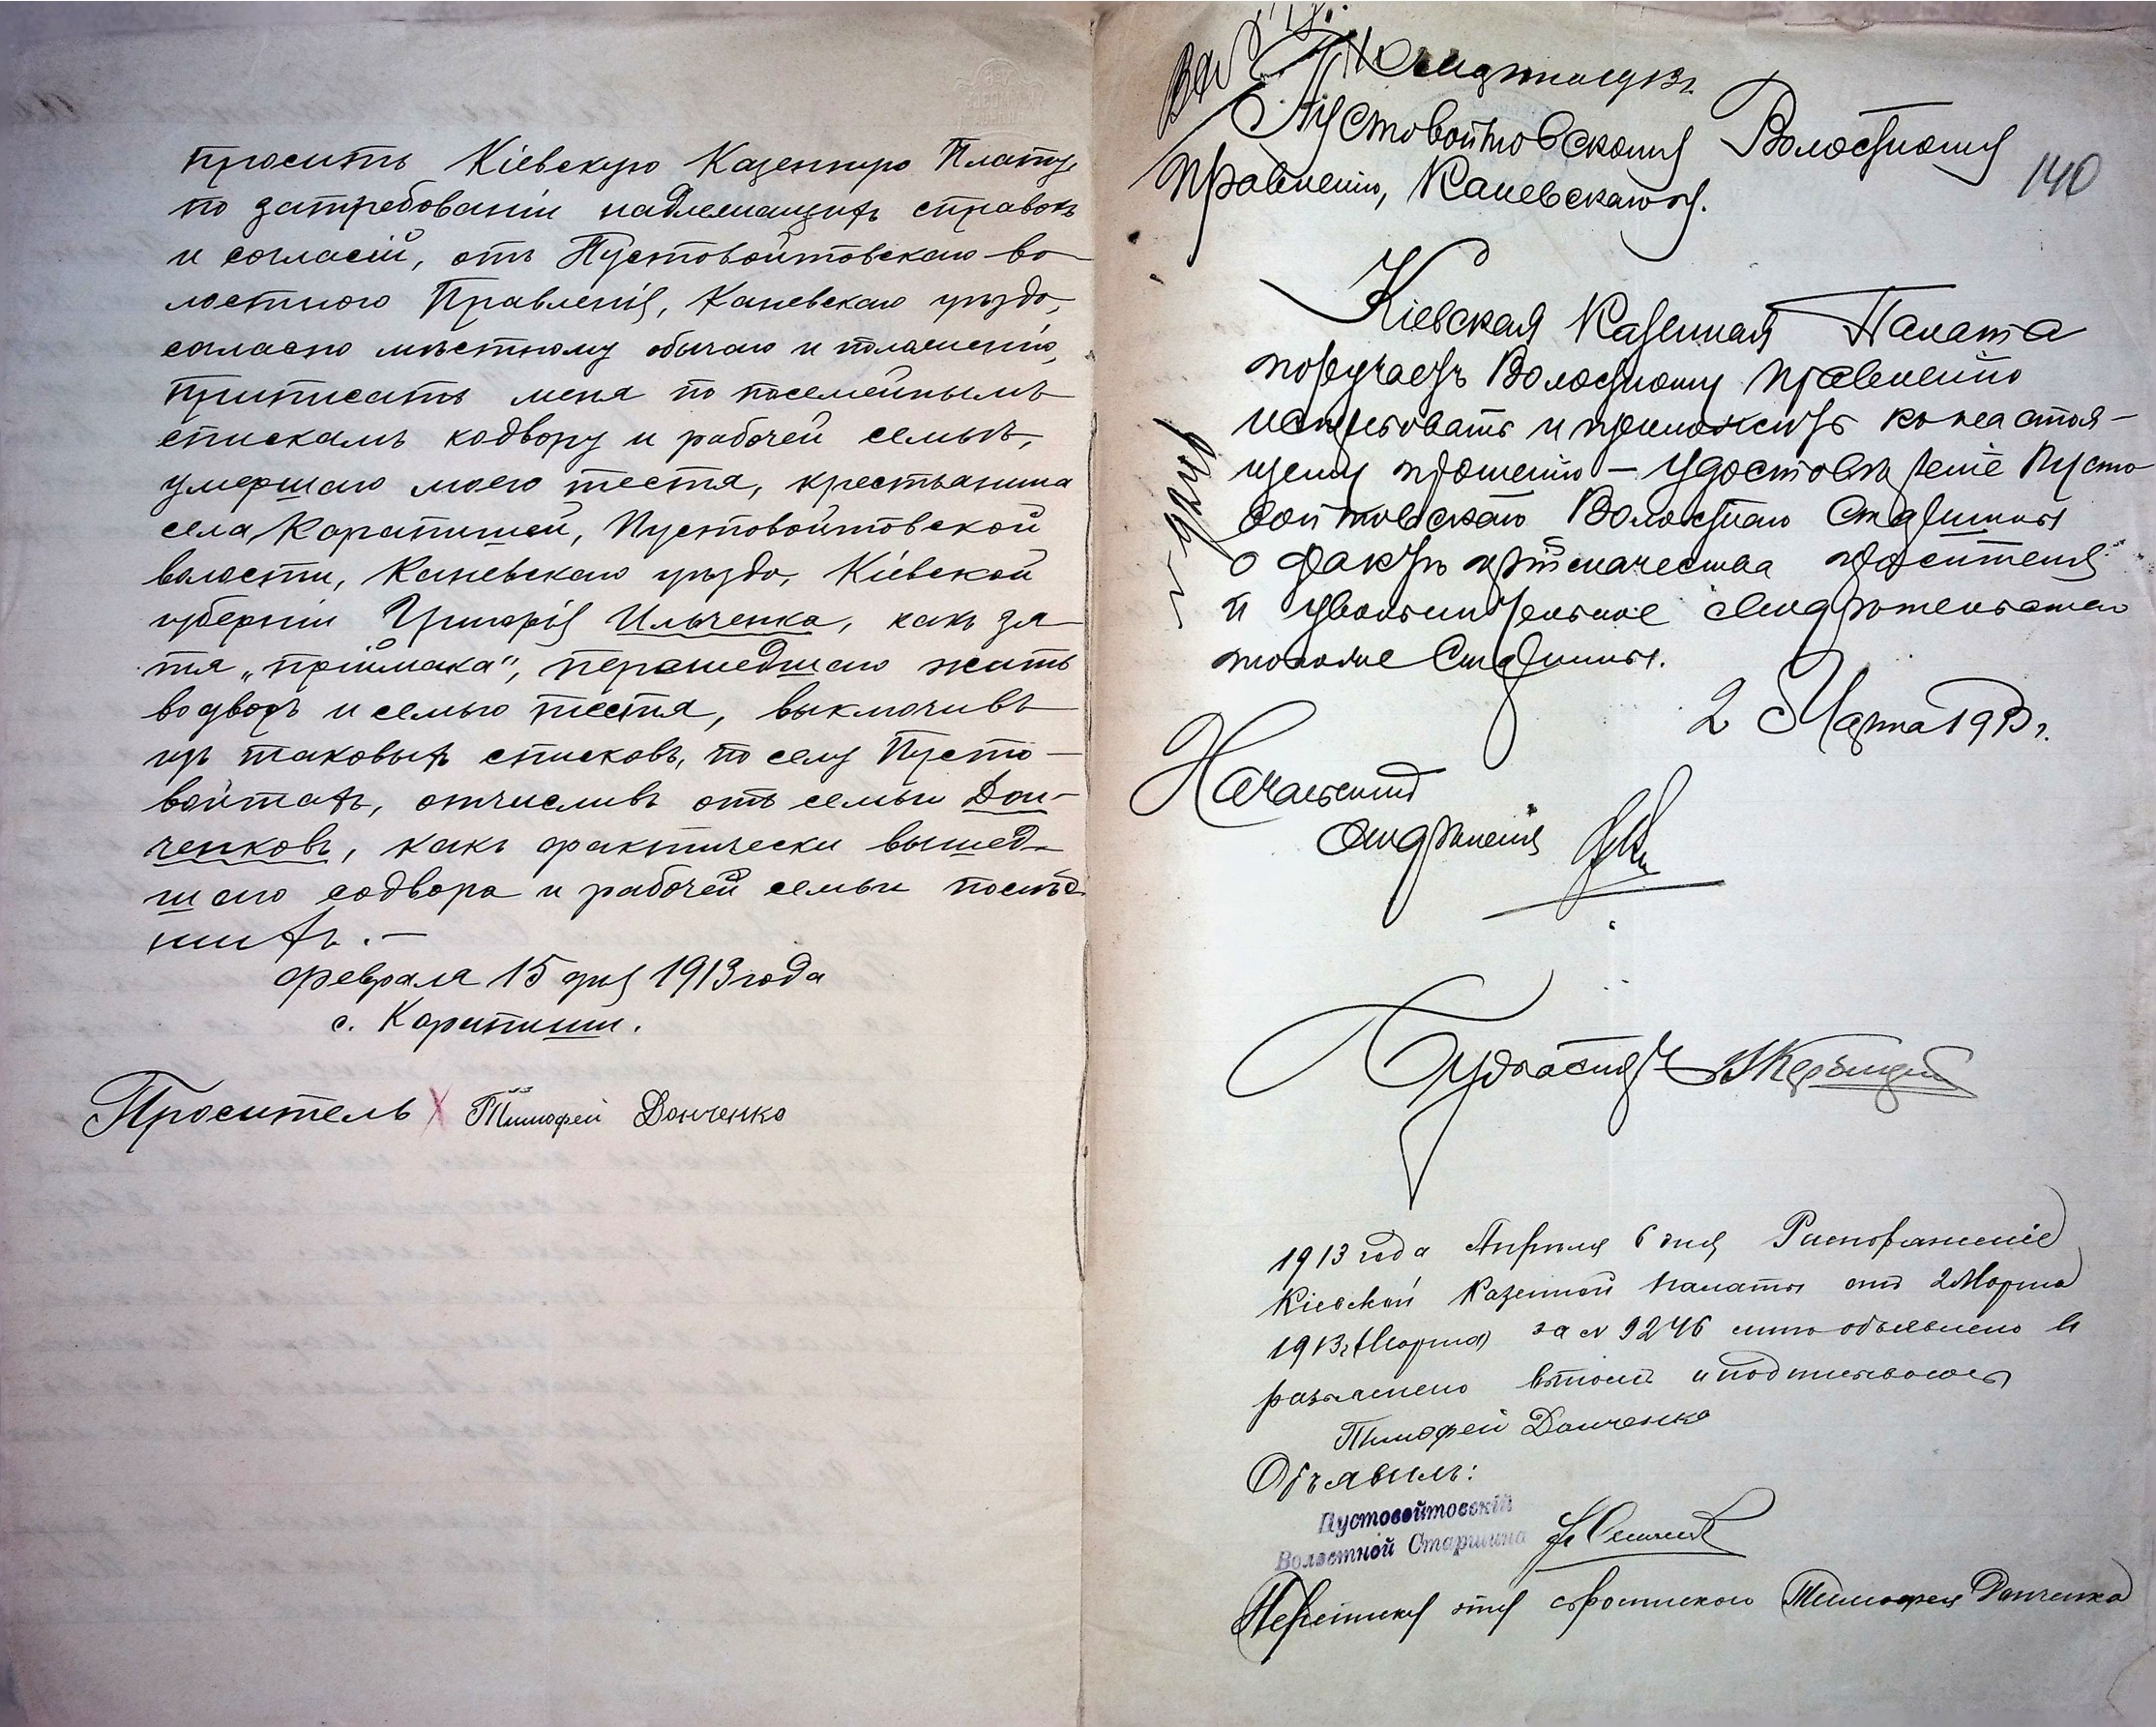 просить Кіевскую Казенную Палату,
по затребованіи надлежащихъ справокъ
и согласій, отъ Пустовойтовскаго во
лостного Правленія, Каневскаго уѣзда,
согласно мѣстному обычаю и положенію,
приписать меня по посемейнымъ
спискамъ ко двору и рабочей семьѣ,
умершаго моего тестя, крестьянина
села Карапишей, Пустовойтовской
волости, Каневскаго уѣзда, Кіевской
губерніи Григорія Ильченка, какъ зя
тя „пріймака“, перешедшаго жить
во дворъ и семью тестя, выключивъ
изъ таковыхъ списковъ, по селу Пусто-
войтахъ, отчисливъ отъ семьи Дон-
ченковъ, какъ фактически вышед-
шаго со двора и рабочей семьи послѣд
нихъ.—
Февраля 15 дня 1913 года
с. Карапиши.
Проситель Х Тимофей Донченко
140
Пустовойтовскому Волостному
Правленію, Каневскаго у.
Кіевская Казенная Палата
поручаетъ Волостному Правленію
истребовать и приложить къ настоя-
щему прошенію — удостовѣреніе Пусто
войтовскаго Волостнаго Старшины
о фактѣ пріймачества просителя
и увольнительное
Старшины.
2 Марта 1913 г.
Начальникъ
Отдѣленія
1913 года Апрѣля 6 дня Распоряженіе
Кіевской Казенной Палаты отъ 2 Марта
1913 г. за № 9246 мнѣ объявлено и
разъяснено въ томъ и подписываюсь
Тимофей Донченко
Объявилъ:
Пустовойтовскій
Волостной Старшина
Тимофея Донченка